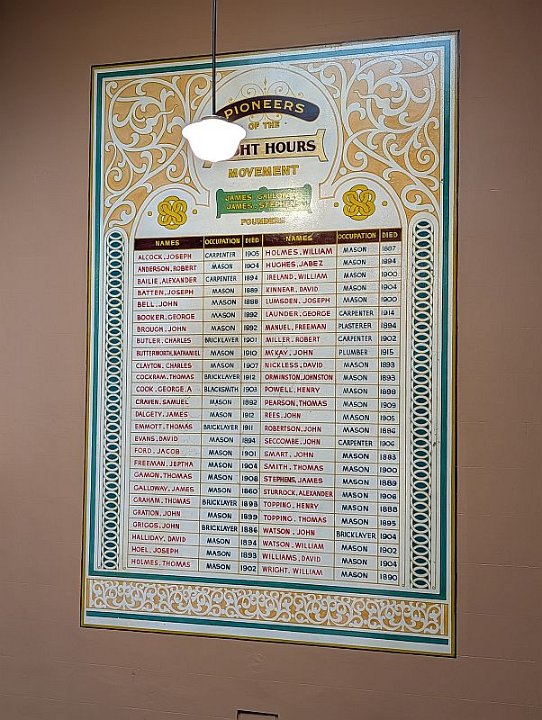 PIONEERS
OF THE
GHT HOURS
MOVEMENT
JAMES GALLOWAY
JAMES STEPHENS
FOUNDERS
NAMES OCCUPATION DIED NAMES OCCUPATION DIED
ALCOCK, JOSEPH CARPENTER 1905 HOLMES, WILLIAM MASON 1887
ANDERSON, ROBERT MASON 1904 HUGHES, JABEZ MASON 1894
BAILIE, ALEXANDER CARPENTER 1894 IRELAND, WILLIAM MASON 1900
BATTEN, JOSEPH MASON 1889 KINNEAR, DAVID MASON 1904
BELL, JOHN MASON 1888 LUMSDEN, JOSEPH MASON 1900
BOOKER, GEORGE MASON 1892 LAUNDER, GEORGE CARPENTER 1914
BROUGH, JOHN MASON 1892 MANUEL, FREEMAN PLASTERER 1894
BUTLER, CHARLES BRICKLAYER 1901 MILLER, ROBERT CARPENTER 1902
BUTTERWORTH, NATHANIEL MASON 1910 McKAY, JOHN PLUMBER 1915
CLAYTON, CHARLES MASON 1907 NICKLESS, DAVID MASON 1893
COCKRAM, THOMAS BRICKLAYER 1912 ORMINSTON, JOHNSTON MASON 1893
COOK, GEORGE. A BLACKSMITH 1903 POWELL, HENRY MASON 1898
CRAVEN, SAMUEL MASON 1892 PEARSON, THOMAS MASON 1909
DALGETY, JAMES MASON 1912 REES, JOHN MASON 1905
EMMOTT, THOMAS BRICKLAYER 1911 ROBERTSON, JOHN MASON 1886
EVANS, DAVID MASON 1894 SECCOMBE, JOHN CARPENTER 1906
FORD, JACOB MASON 1901 SMART, JOHN MASON 1883
FREEMAN, JEPTHA MASON 1904 SMITH, THOMAS MASON 1900
GAMON, THOMAS MASON 1908 STEPHENS, JAMES MASON 1889
GALLOWAY, JAMES MASON 1860 STURROCK, ALEXANDER MASON 1906
GRAHAM, THOMAS BRICKLAYER 1898 TOPPING, HENRY MASON 1888
GRATION, JOHN MASON 1899 TOPPING, THOMAS MASON 1895
GRIGGS, JOHN BRICKLAYER 1886 WATSON, JOHN BRICKLAYER 1904
HALLIDAY, DAVID MASON 1894 WATSON, WILLIAM MASON 1902
HOEL, JOSEPH MASON 1893 WILLIAMS, DAVID MASON 1904
HOLMES, THOMAS MASON 1902 WRIGHT, WILLIAM MASON 1890